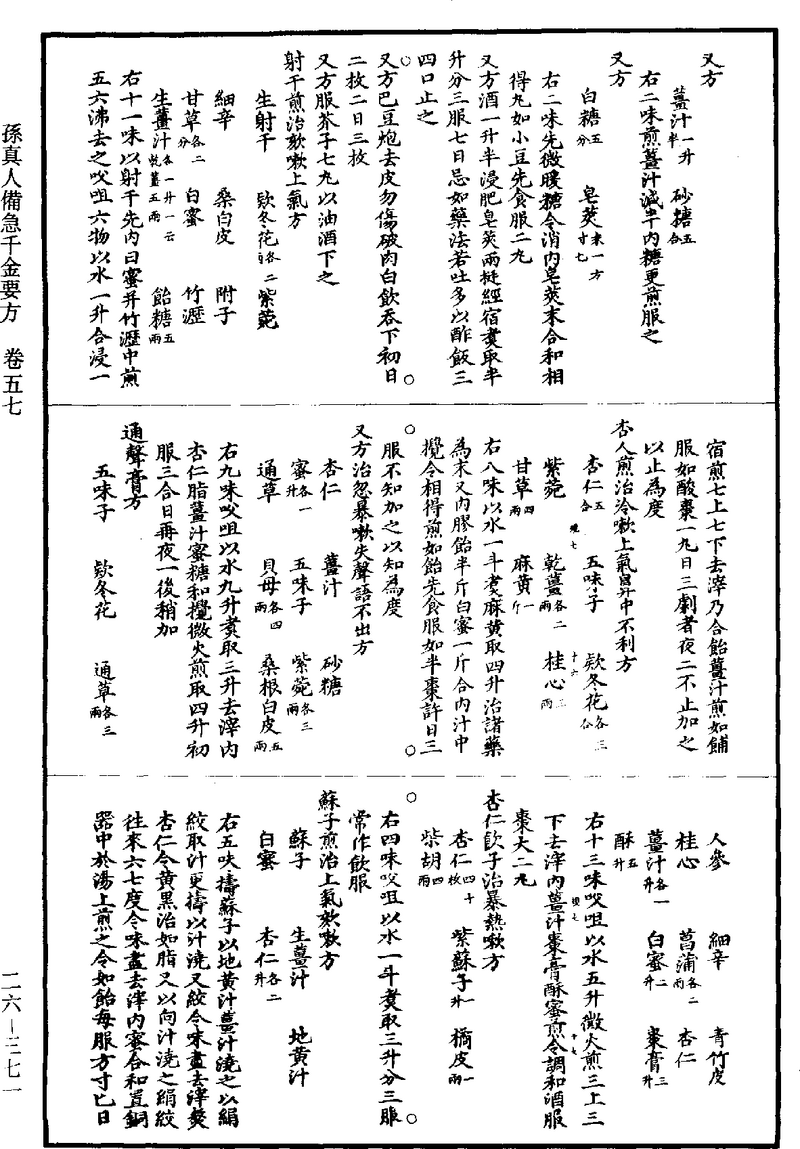 又方
薑汁一升半 砂糖五合
右二味煎薑汁減半內糖更煎服之
又方
白糖五分 皂莢末一方寸七
右二味先微暖糖令消內皂莢末合和相
得丸如小豆先食服二丸
又方酒一升半浸肥皂莢兩挺經宿煑取半
升分三服七日忌如藥法若吐多以酢飯三
四口止之
又方巴豆炮去皮勿傷破肉白飲吞下初日
二枚二日三枚
又方服芥子七丸以油酒下之
射干煎治欬嗽上氣方
生射干 欵冬花各二兩 紫菀
細辛 桑白皮 附子
甘草各二分 白蜜 竹瀝
生薑汁各一升一云乾薑五兩 飴糖五兩
右十一味以射干先內白蜜并竹瀝中煎
五六沸去之㕮咀六物以水一升合浸一
宿煎七上七下去滓乃合飴薑汁煎如餔
服如酸棗一丸日三劇者夜二不止加之
以止為度
杏人煎治冷嗽上氣鼻中不利方
杏仁五合 五味子 欵冬花各三合
紫菀 乾薑各二兩 桂心二兩
甘草四兩 麻黃一斤
右八味以水一斗煑麻黃取四升治諸藥
為末又內膠飴半斤白蜜一斤合內汁中
攪令相得煎如飴先食服如半棗許日三
服不知加之以知為度
又方治忽暴嗽失聲語不出方
杏仁 薑汁 砂糖
蜜各一升 五味子 紫菀各三兩
通草 貝母各四兩 桑根白皮五兩
右九味㕮咀以水九升煑取三升去滓內
杏仁脂薑汁蜜糖和攪微火煎取四升初
服三合日再夜一後稍加
通聲膏方
五味子 欵冬花 通草各三兩
人參 細辛 青竹皮
桂心 菖蒲各二兩 杏仁
薑汁各一升 白蜜二升 棗膏三升
酥五升
右十三味㕮咀以水五升微火煎三上三
下去滓內薑汁棗膏酥蜜煎令調和酒服
棗大二丸
杏仁飲子治暴熱嗽方
杏仁四十枚 紫蘇子一升 橘皮一兩
柴胡四兩
右四味㕮咀以水一斗煑取三升分三服
常作飲服
蘇子煎治上氣欬嗽方
蘇子 生薑汁 地黃汁
白蜜 杏仁各二升
右五味擣蘇子以地黃汁薑汁澆之以絹
絞取汁更擣以汁澆又絞令味盡去滓熬
杏仁令黃黑治如脂又以向汁澆之絹絞
往來六七度令味盡去滓內蜜合和置銅
器中於湯上煎之令如飴每服方寸匕日
孫真人備急千金要方 卷五七
二六-三七一